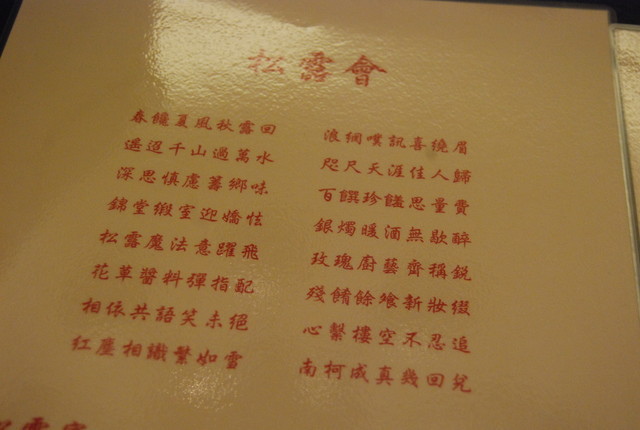 松露會
春饈夏風秋露回
浪網噗訊喜繞眉
遙迢千山過萬水
咫尺天涯佳人歸
深思慎慮籌鄉味
百饌珍饈思量費
錦堂緞室迎嬌怯
銀燭暖酒無歇醉
松露魔法意躍飛
玫瑰廚藝齊稱銳
花草醬料彈指配
殘餚餘飧新妝綴
相依共語笑未絕
心繫樓空不忍追
紅塵相識繁如雪
南柯成真幾回兌